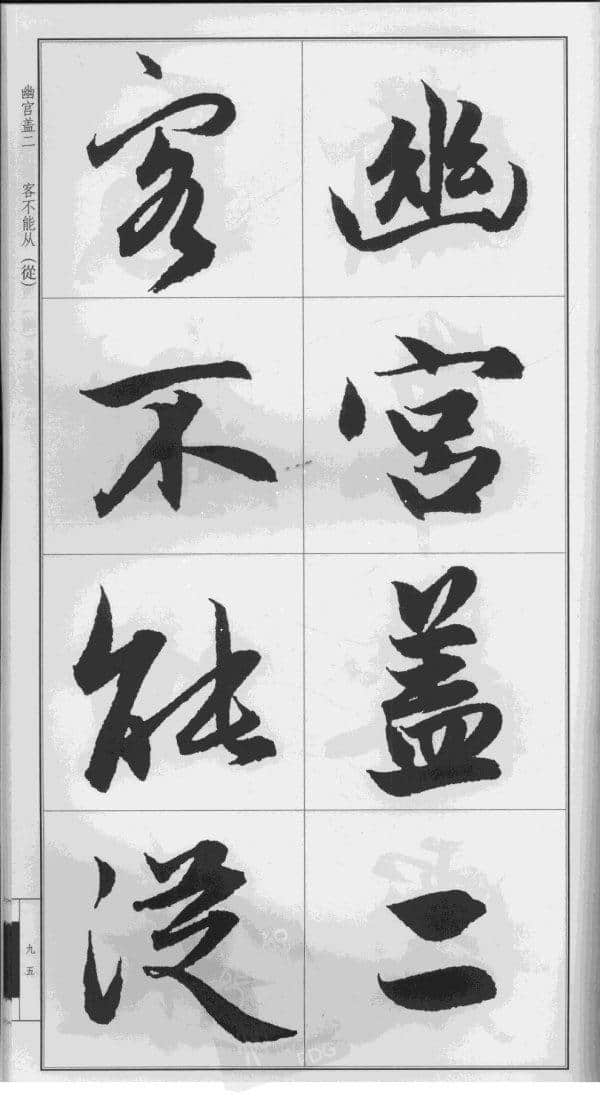 幽宫盖二
客不能従
幽宫盖二 客不能从（從）
九五
PDG